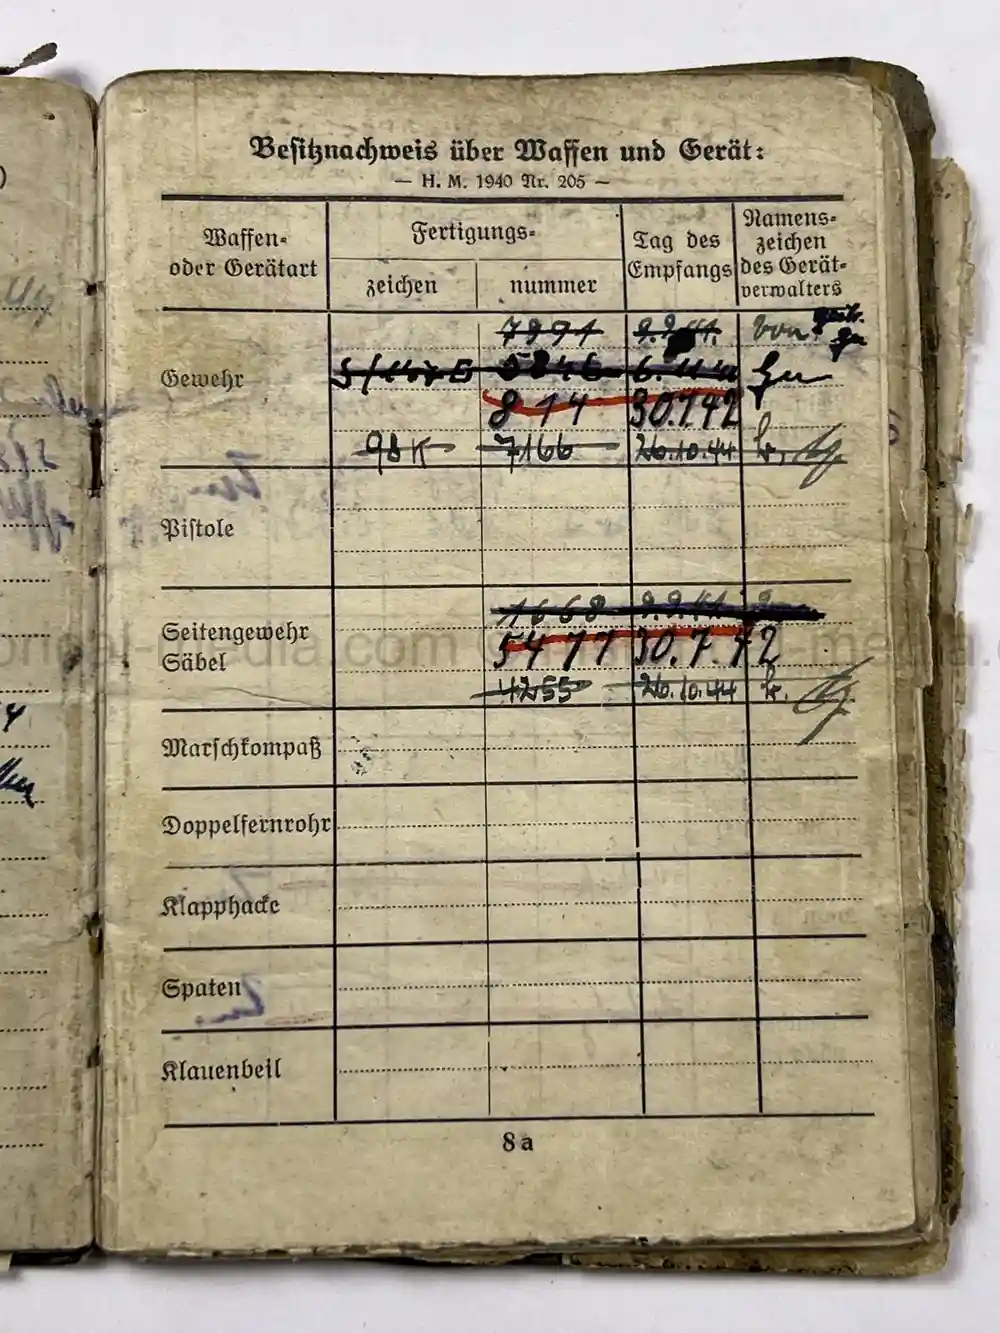 Besitznachweis über Waffen und Gerät:
— H. M. 1940 Nr. 205 —
Waffen- oder Gerätart
Fertigungs-
zeichen
nummer
Tag des Empfangs
Namens-zeichen des Gerät-verwalters
Gewehr
7891 9.9.41. von
5846
814 30.7.42
98K 7166 26.10.44
Pistole
Seitengewehr
Säbel
1668 9.9.41
5477 30.7.42
4255 26.10.44
Marschkompaß
Doppelfernrohr
Klapphacke
Spaten
Klauenbeil
8a